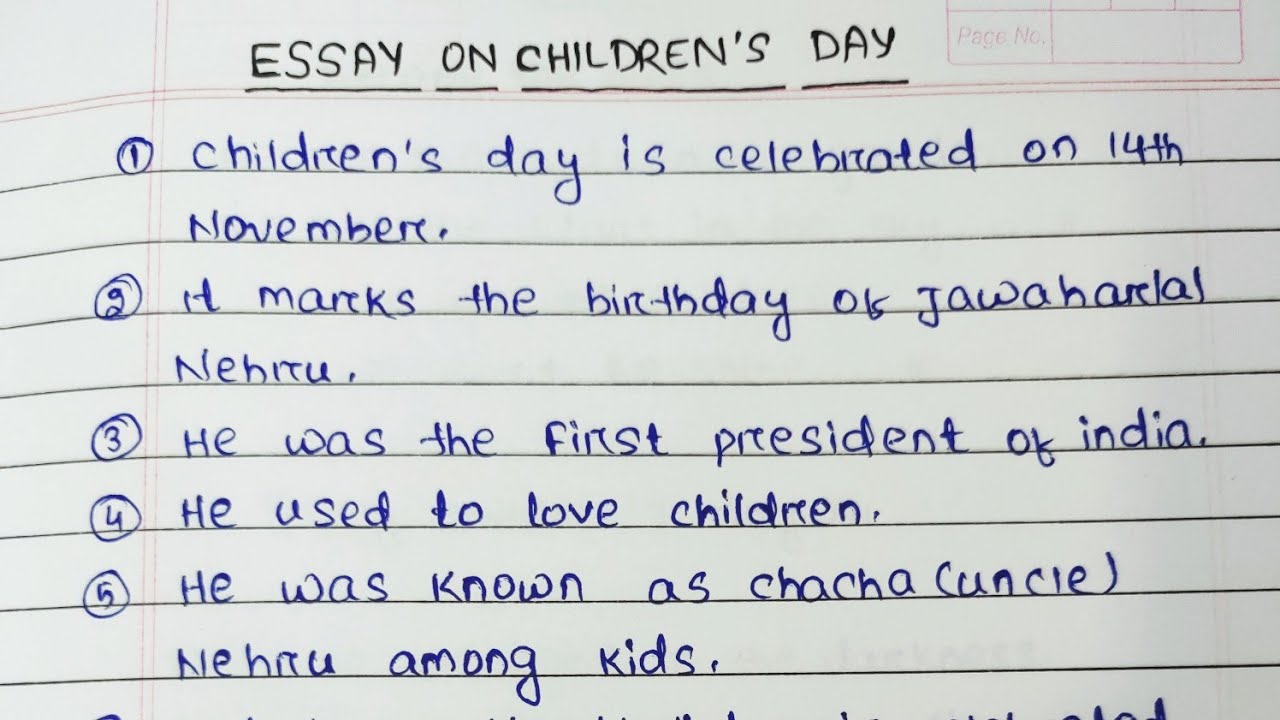 Page No.
ESSAY ON CHILDREN'S DAY
① Children's day is celebrated on 14th
November.
② It marks the birthday of Jawaharlal
Nehru.
③ He was the first president of india.
④ He used to love children.
⑤ He was known as chacha (uncle)
Nehru among kids.